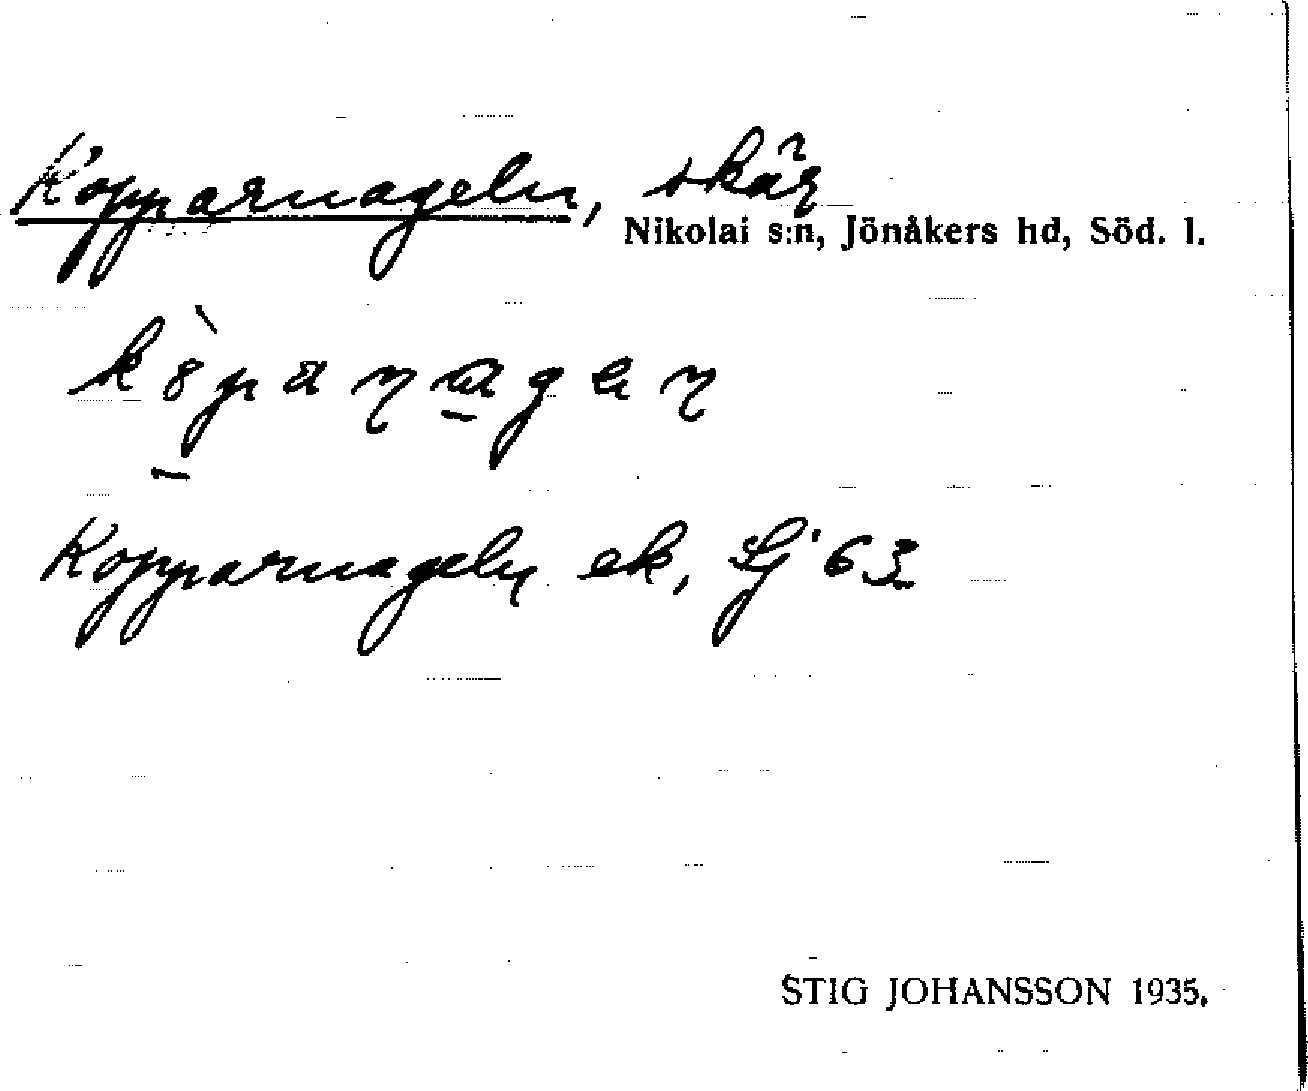 Kopparnageln, skär
Nikolai s:n, Jönåkers hd, Söd. l.
Kopparnageln ek, Sj 63
STIG JOHANSSON 1935.